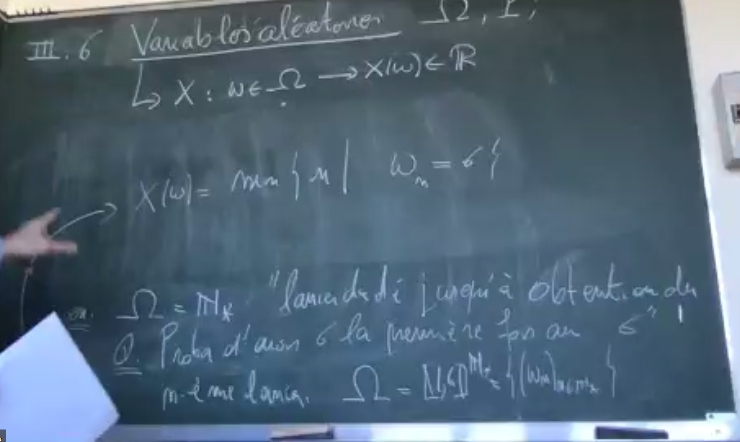 III.6 Variables aléatoires Ω, P,
↳ X : ω ∈ Ω → X(ω) ∈ ℝ
X(ω) = min { n | ω_n = 6 }
ex. Ω = ℕ* "lancer du dé jusqu'à obtention du 6"
Q. Proba d'avoir 6 la première fois au
n-ème lancer. Ω = [[1,6]]^ℕ* = { (ω_n)_{n∈ℕ*} }